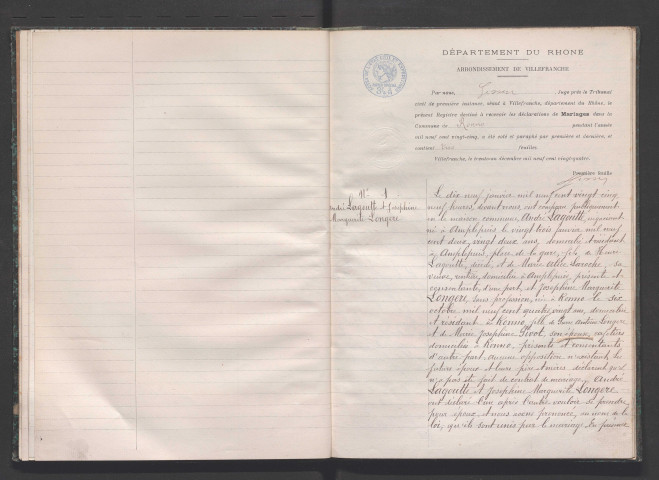 DÉPARTEMENT DU RHONE
ARRONDISSEMENT DE VILLEFRANCHE
Par nous, Juge près le Tribunal
civil de première instance, séant à Villefranche, département du Rhône, le
présent Registre destiné à recevoir les déclarations de Mariages dans la
Commune de Ronno pendant l'année
mil neuf cent vingt-cinq, a été coté et paraphé par première et dernière, et
contient feuilles.
Villefranche, le trente-un décembre mil neuf cent vingt-quatre.
Première feuille
N° 1
André Lagoutte et Joséphine
Marguerite Longère
Le dix neuf janvier mil neuf cent vingt cinq
neuf heures, devant nous ont comparu publiquement
en la maison commune, André Lagoutte,
né à Amplepuis le vingt trois janvier mil neuf
cent deux, vingt deux ans, domicilié et résidant
à Amplepuis, place de la gare, fils de
Lagoutte, décédé, et de Marie Laroche, sa
veuve, rentière, domiciliée à Amplepuis, présente et
consentante, d'une part, et Joséphine Marguerite
Longère, sans profession, née à Ronno le six
octobre mil neuf cent quatre, vingt ans, domiciliée
et résidant à Ronno, fille de Longère
et de Marie Joséphine Pivot, son épouse,
domiciliés à Ronno, présents et consentants
d'autre part. Aucune opposition n'existant, les
futurs époux et leurs père et mères déclarent qu'il
n'a pas été fait de contrat de mariage. André
Lagoutte et Joséphine Marguerite Longère
ont déclaré l'un après l'autre vouloir se prendre
pour époux et nous avons prononcé, au nom de la
loi, qu'ils sont unis par le mariage. En présence